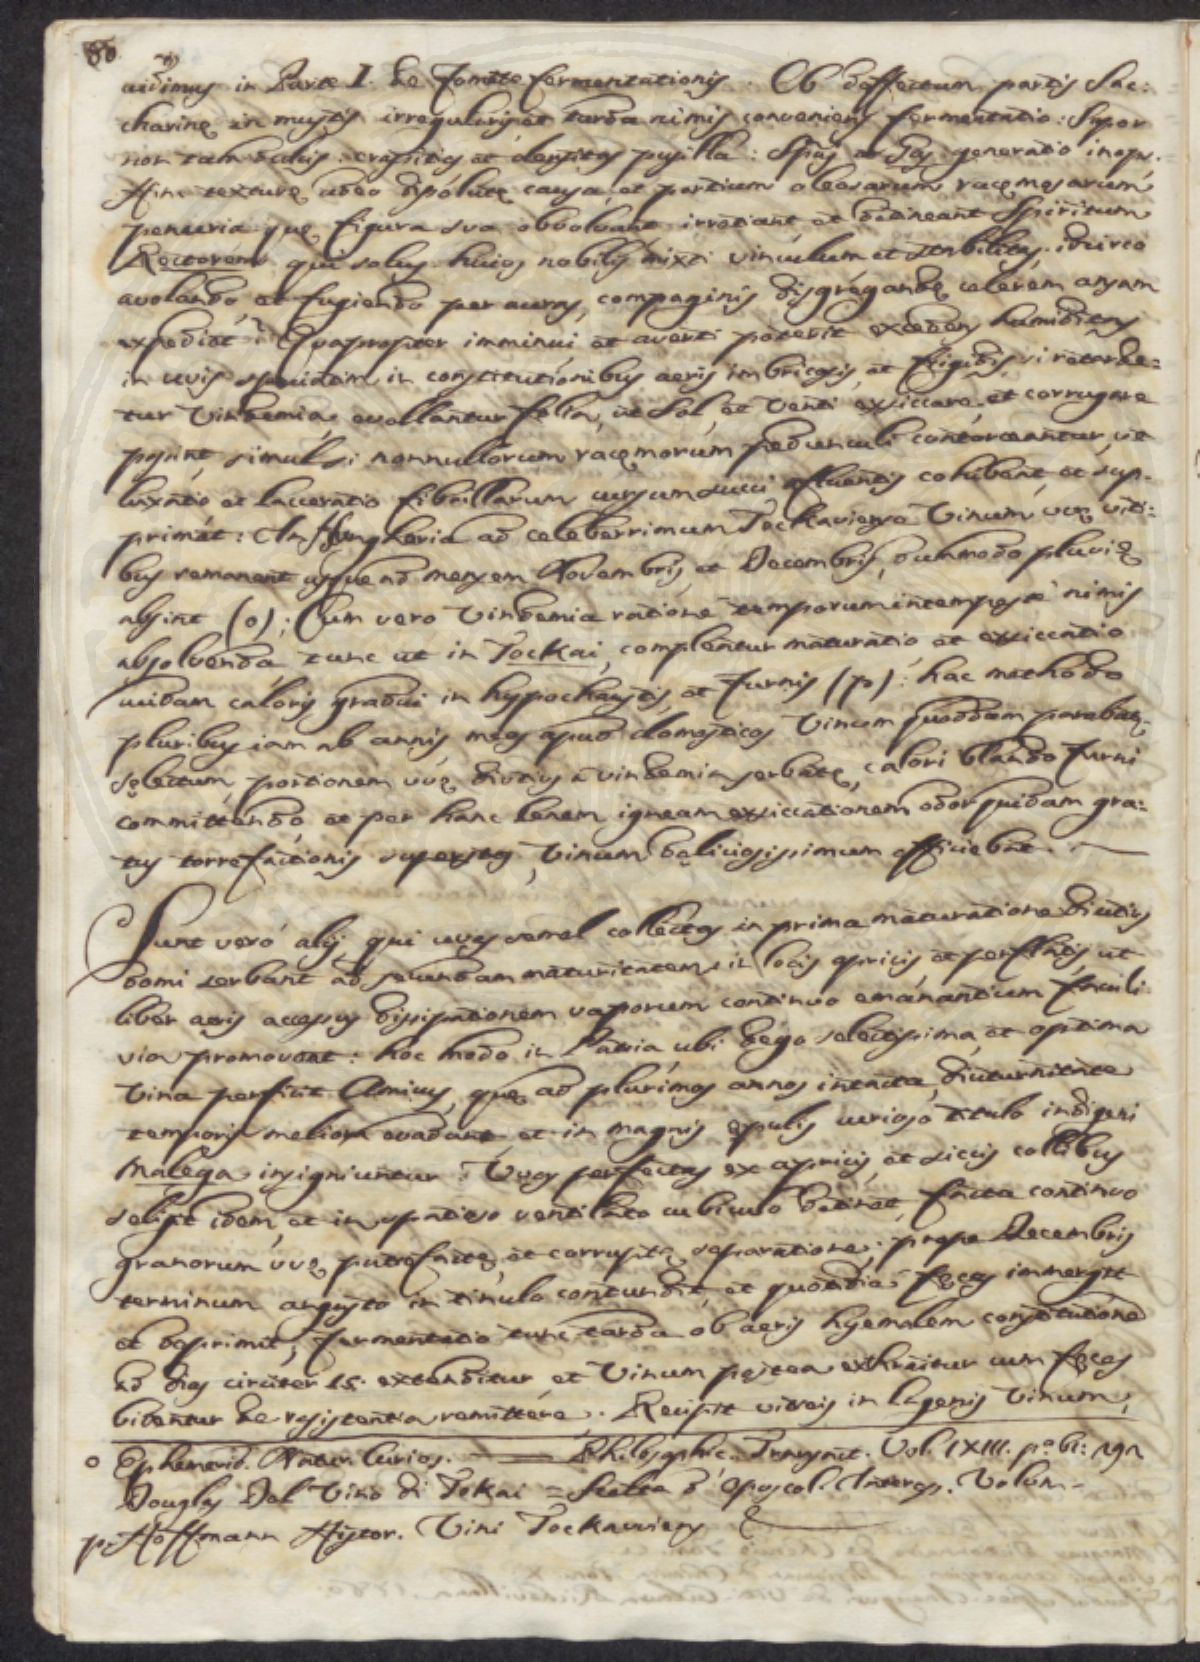 86
(n)
vidimus in Parte I. de Fomite fermentationis. Ob deffectum partis Sac:
charinę in mustis irregularis et tarda nimis conveniens fermentatio: Sapor
non tam dulcis: crassities et densitas pusilla: Spūs ac Gas generatio inops.
Hinc texturę adeo dissolutę causa, et partium oleosarum racęmosarum
penuria quę figura sua obvolvant irretiant et detineant Spiritum
Rectorem qui solus huius nobilis mixti vinculum et stabilitas, idcirco
avolando, et fugiendo per auras, compaginis disgregandę celerem ansam
expediat. Quapropter imminui et averti poterit excedens humiditas
in uvis in constitutionibus aeris imbricosis, et frigidis si retarde=
tur Vindemia, evellantur folia, ut Sol, et Venti exsiccare et corrugare
possint, simul si nonnullorum racęmorum pedunculi contorceantur, ut
luxatio et lacceratio fibrillarum cursum succi affluentis cohibeat, et sup=
primat: In Hungheria ad celeberrimum Tockaviense Vinum uvę viti=
bus remanent usque ad mensem Novembris, et Decembris, dummodo pluvię
absint (o); Cum vero Vindemia ratione temporum intempestę nimis
absolvenda, tunc ut in Tockai, compleatur maturatio et exsiccatio
caloris gradui in hypochaustis, et furnis (p): hac methodo
pluribus iam ab annis meos apud domesticos Vinum quoddam parabam
sęlectum, portionem uvę diutius a vindemia serbatę, calori blando furni
committendo, et per hanc lenem igneam exsiccationem odor quidam gra=
tus torrefactionis superstes, Vinum dęliciosissimum efficiebat.
Sunt veró alij, qui uvas semel collectas in prima maturatione diutius
domi serbant ad secundam maturitatem in locis apricis, et perflatis, ut
liber aeris accessus dissipationem vaporum continuo emanantium facili
via promoveat: hoc modo in Patria, ubi dego selectissima, et optima
Vina perficit Amicus, quę ad plurimos annos intacta, diuturnitate
temporis meliora evadunt, et in magnis epulis curioso titulo indigeni
Malega insigniuntur. Uvas perfectas ex apricis, et siccis collibus
seligit idem, et in spatioso ventilato cubiculo detinet, facta continuo
granorum uvę putrefactę, et corruptę separatione; prope Decembris
terminum angusto in tinulo contundit, et quotidie fęces immergit
et deprimit, fermentatio tunc tarda ob aeris hyemalem constitutione
ad dies circiter 15. extenditur et Vinum postea exhraitur cum fęces
videntur de resistentia remittere. Recipit vitreis in lagenis Vinum,
o Ephemerid. Natur. Curios. —— Philosophic. Transact. Vol. LXIII. p.e bl: 292
Douglas Del Vino di Tokai = Scelta d' Opuscol. Interess. Volum.
p. Hoffmann Histor. Vini Tockaviens